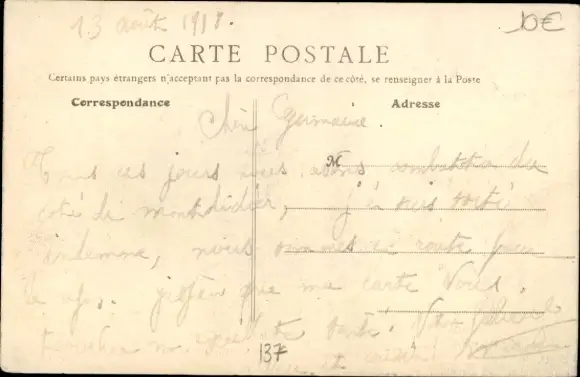 13 août 1918.
10€
CARTE POSTALE
Certains pays étrangers n'acceptant pas la correspondance de ce côté, se renseigner à la Poste
Correspondance
Adresse
Chère Germaine.
M
Tous ces jours nous avons combattu du
coté de montdidier, j'en suis sorti
indemne, nous sommes en route pour
le j'espère que ma carte Vous
santé. Votre
137
et